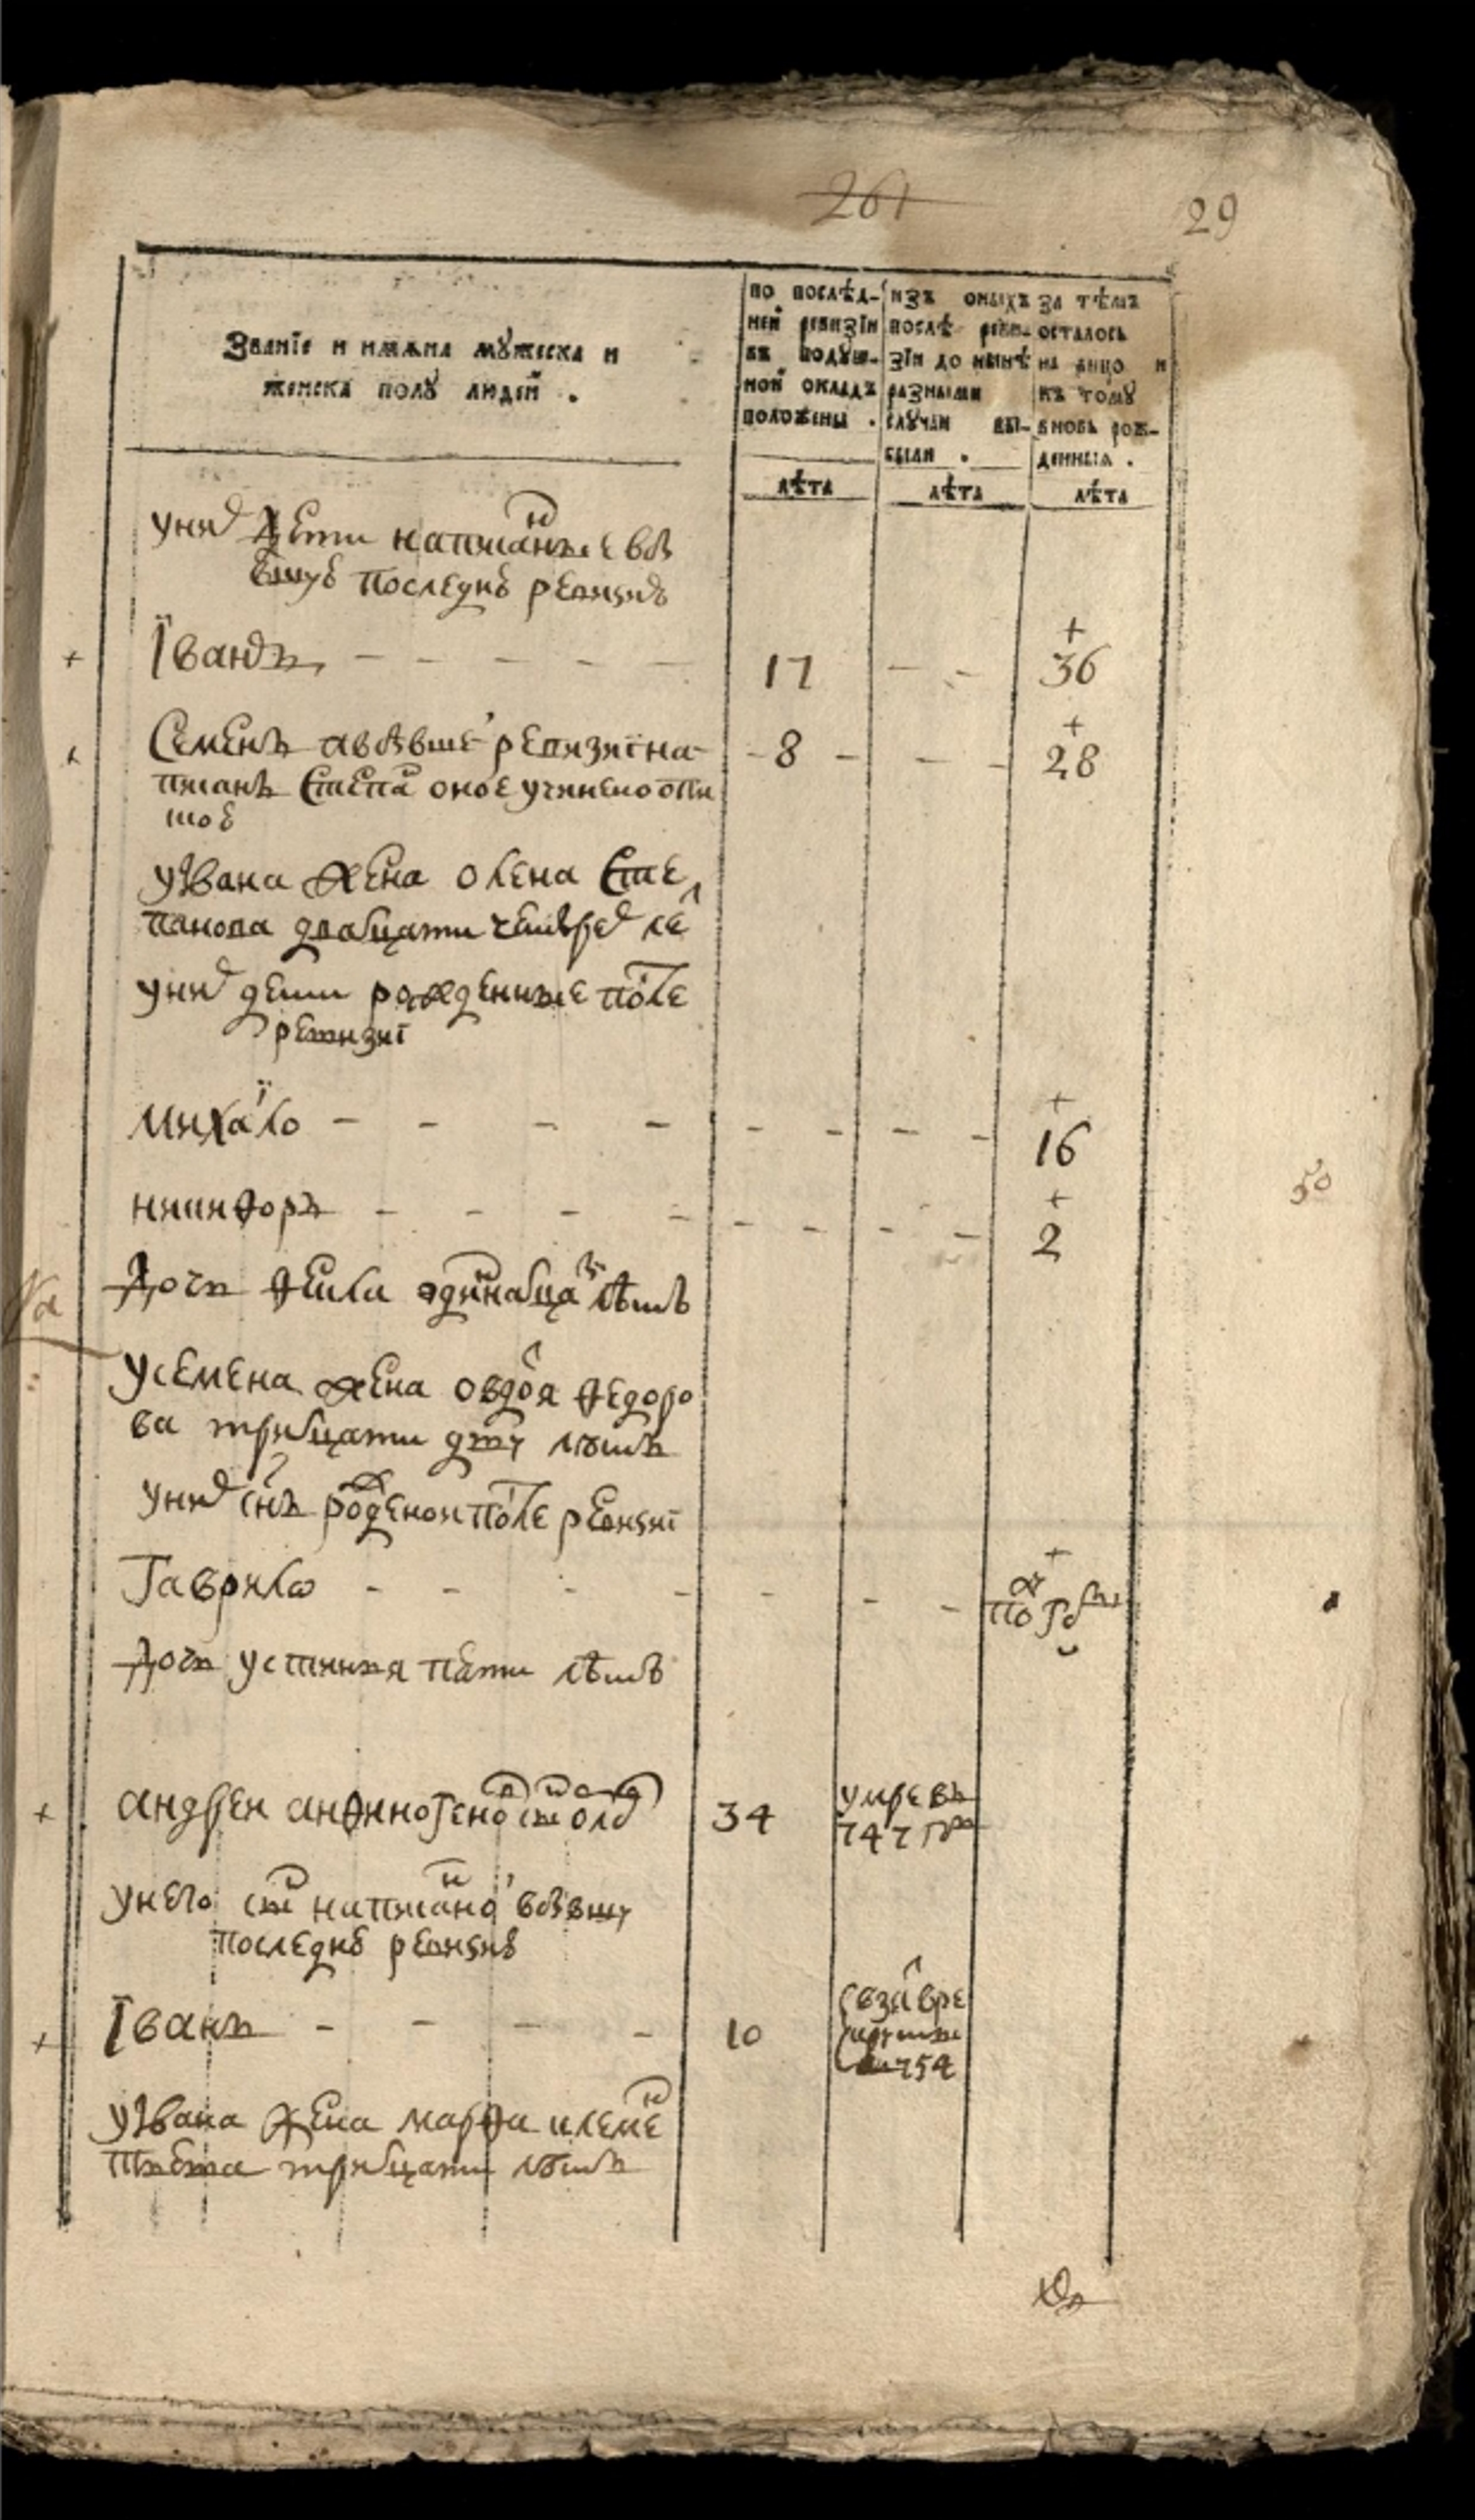 261
29
Званїе и имяна мꙋжеска и
женска полꙋ людей .
по послѣд-
ней ревизїи
въ подꙋш-
ной окладъ
положены .
изъ оныхъ
послѣ реви-
зїи до нынѣ
разными
слꙋчаи вы-
были .
за тѣмъ
осталось
на лицо и
къ томꙋ
вновь рож-
денныя .
лѣта
лѣта
лѣта
у них дети написанные въ
последнюю ревизию
Їванъ 17 36
Семенъ а въ бывшей ревизиї на-
писанъ Степан оное учинено
8 28
у Ївана жена олена Сте
панова двадцати четырех лет
у них дети рожденные после
ревизиї
михаїло 16
никифоръ 2
50
Дочь фекла одиннадцать лѣтъ
у семена жена овдотя федоро
ва тритцати дву лѣтъ
у них снъ рожденои после ревизиї
Гаврило по году
Дочь устинья пяти лѣтъ
андреи 34 умре въ
747 году
у него снъ написанои в бывшую
последнюю ревизию
Їванъ 10
754
у Ївана жена марфа клемен
тьева тритцати лѣтъ